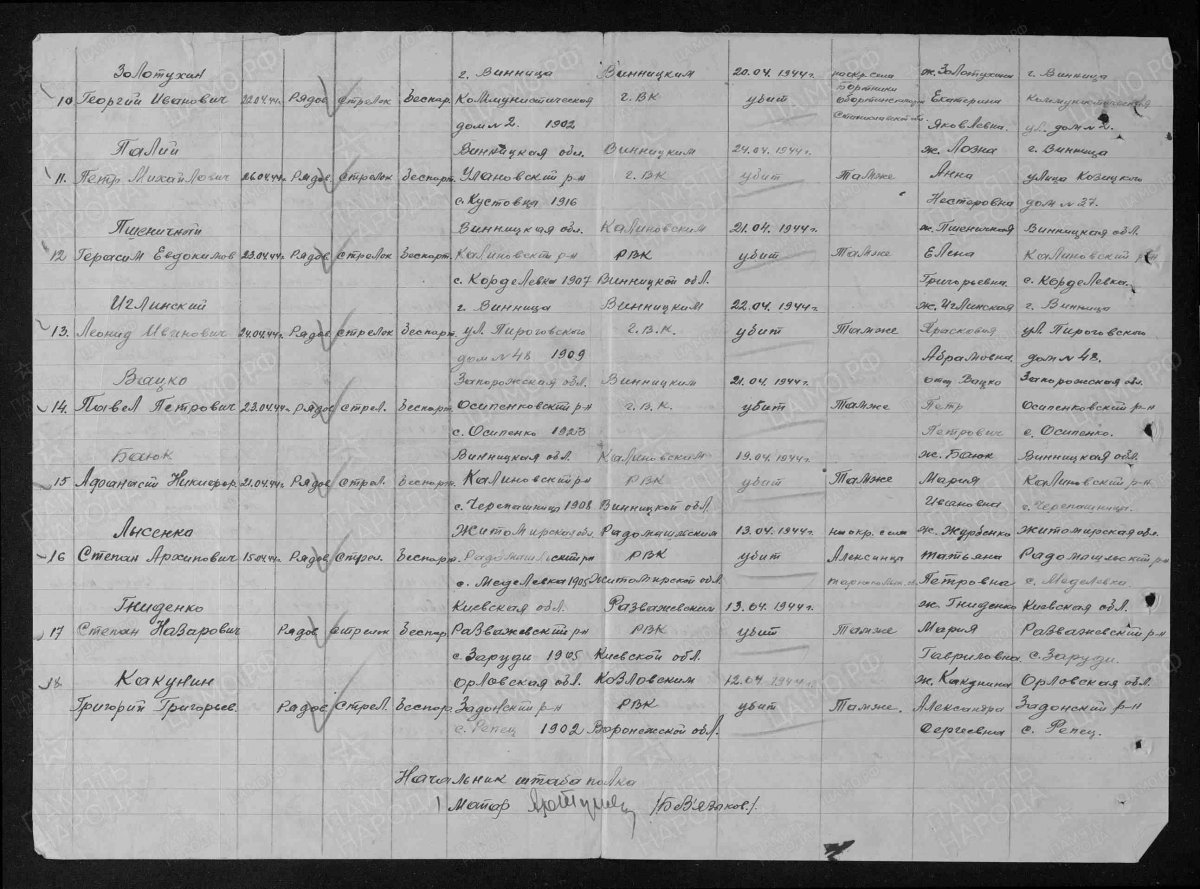 Золотухин г. Винница Винницким 20.04.1944г. ж. Золотухина г. Винница
10 Георгий Иванович 22.04.44г. Рядов Стрелок беспар. Коммунистическая г. ВК убит Екатерина Коммунистическая
дом № 2. 1902 Яковлевна. ул. дом № 2.
Палий Винницкая обл. Винницким 24.04.1944г. ж. Лозна г. Винница
11. Петр Михайлович 26.04.44г. Рядов Стрелок беспарт. Улановский р-н г. ВК убит Там же Анна улица Козицкого
с. Кустовца 1916 Нестеровна дом № 27.
Пшеничный Винницкая обл. Калиновским 21.04.1944г. ж. Пшеничная Винницкая обл.
12 Герасим Евдокимов 23.04.44г. Рядов Стрелок беспарт. Калиновский р-н РВК убит Там же Елена Калиновский р-н
с. Корделевка 1907 Винницкой обл. Григорьевна. с. Корделевка.
Иглинский г. Винница Винницким 22.04.1944г. ж. Иглинская г. Винница
13. Леонид Иванович 24.04.44г. Рядов стрелок беспарт. ул. Пироговского г. В.К. убит Там же Прасковия ул. Пироговского
дом № 48 1909 Абрамовна. дом № 48.
Вацко Запорожская обл. Винницким 21.04.1944г. отец Вацко Запорожская обл.
14. Павел Петрович 23.04.44г. Рядов Стрел. беспарт. Осипенковский р-н г. В.К. убит Там же Петр Осипенковский р-н
с. Осипенко 1923 Петрович с. Осипенко.
Баюк Винницкая обл. Калиновским 19.04.1944г. ж. Баюк Винницкая обл.
15 Афанасий Никифор. 21.04.44г. Рядов Стрел. беспарт. Калиновский р-н РВК убит Там же Мария Калиновский р-н
с. Черепашинца 1908 Винницкой обл. Ивановна с. Черепашинца.
Лысенко Житомирская обл. Радомышлским 13.04.1944г. ж. Журбенко Житомирская обл.
16 Степан Архипович 15.04.44г. Рядов Стрел. беспар. РВК убит Алексинца Татьяна Радомышльский р-н
с. Меделевка 1905 Житомирской обл. Петровна с. Меделевка.
Гниденко Киевская обл. Разважевским 13.04.1944г. ж. Гниденко Киевская обл.
17 Степан Назарович Рядов стрелок беспар. Разважевский р-н РВК убит Там же Мария Разважевский р-н
с. Заруди 1905 Киевской обл. Гавриловна с. Заруди.
18. Какунин Орловская обл. Козловским 12.04.1944г. ж. Какунина Орловская обл.
Григорий Григорьев. Рядов Стрел. беспар. Задонский р-н РВК убит Там же. Александра Задонский р-н
с. Репец 1902 Воронежской обл. Сергеевна с. Репец.
Начальник штаба полка
Майор